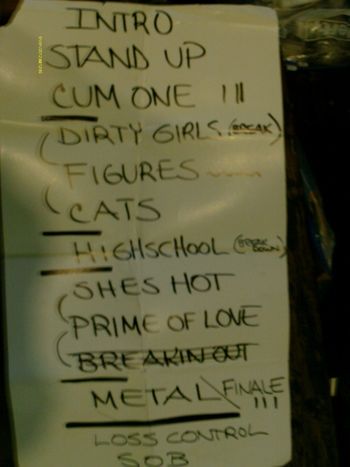 INTRO
STAND UP
CUM ONE !!!
DIRTY GIRLS (BREAK)
FIGURES
CATS
HIGHSCHOOL (BREAK DOWN)
SHES HOT
PRIME OF LOVE
BREAKIN OUT
METAL FINALE !!!
LOSS CONTROL
SOB